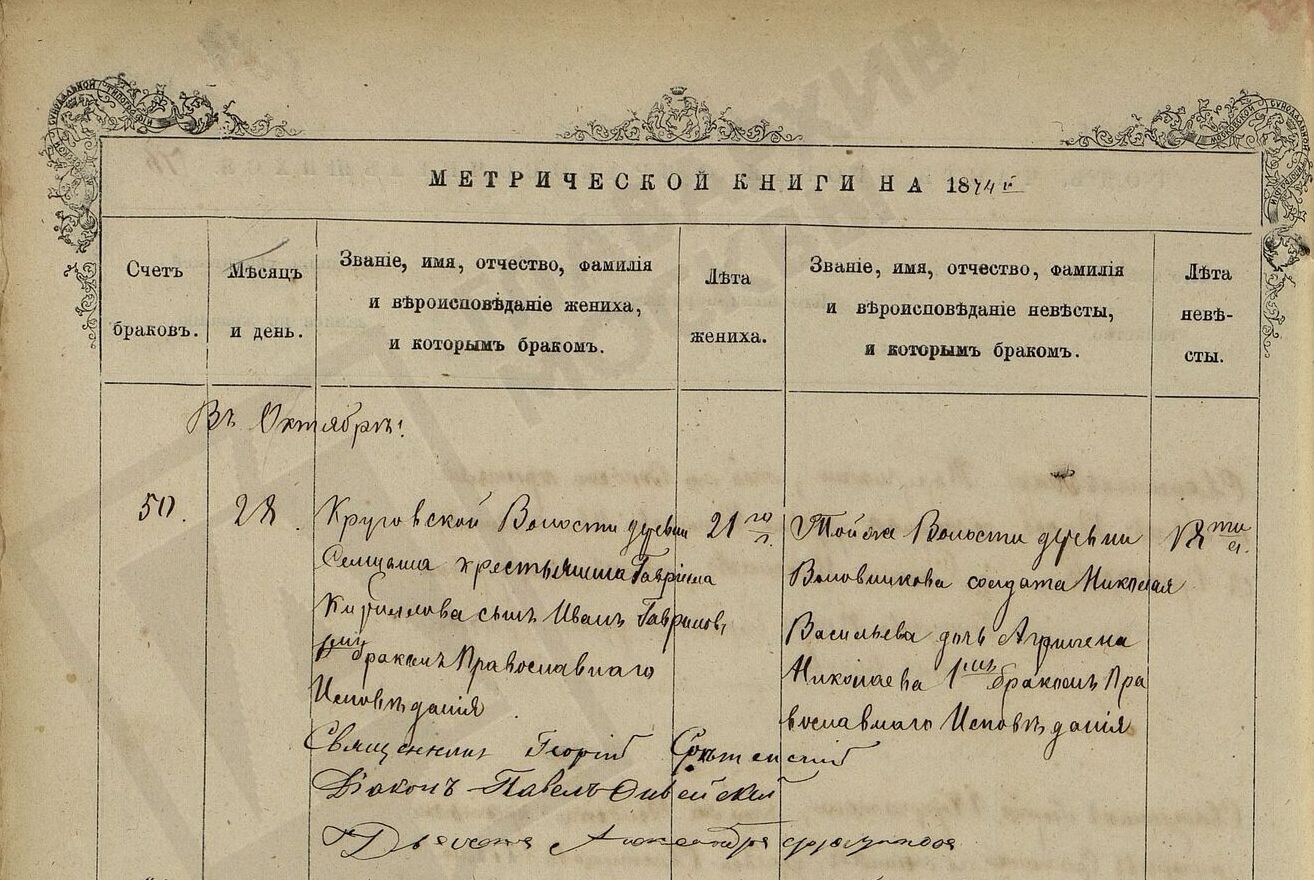 МЕТРИЧЕСКОЙ КНИГИ НА 1874 г
Счетъ браковъ.
Мѣсяцъ и день.
Званіе, имя, отчество, фамилія
и вѣроисповѣданіе жениха,
и которымъ бракомъ.
Лѣта жениха.
Званіе, имя, отчество, фамилія
и вѣроисповѣданіе невѣсты,
и которымъ бракомъ.
Лѣта невѣ-
сты.
Въ Октябрѣ:
50. 28.
Круговской Волости деревни
крестьянина Гавріила
Кириллова сынъ Иванъ Гавриловъ,
бракомъ Православнаго
Исповѣданія
21 го
Тойже Волости деревни
Воловникова солдата Николая
Васильева дочь Агрипена
Николаева 1мъ бракомъ Пра
вославнаго Исповѣданія
18 ти
Священникъ Георгій Срѣтенскій
Діаконъ Павелъ
Дьячекъ Александръ